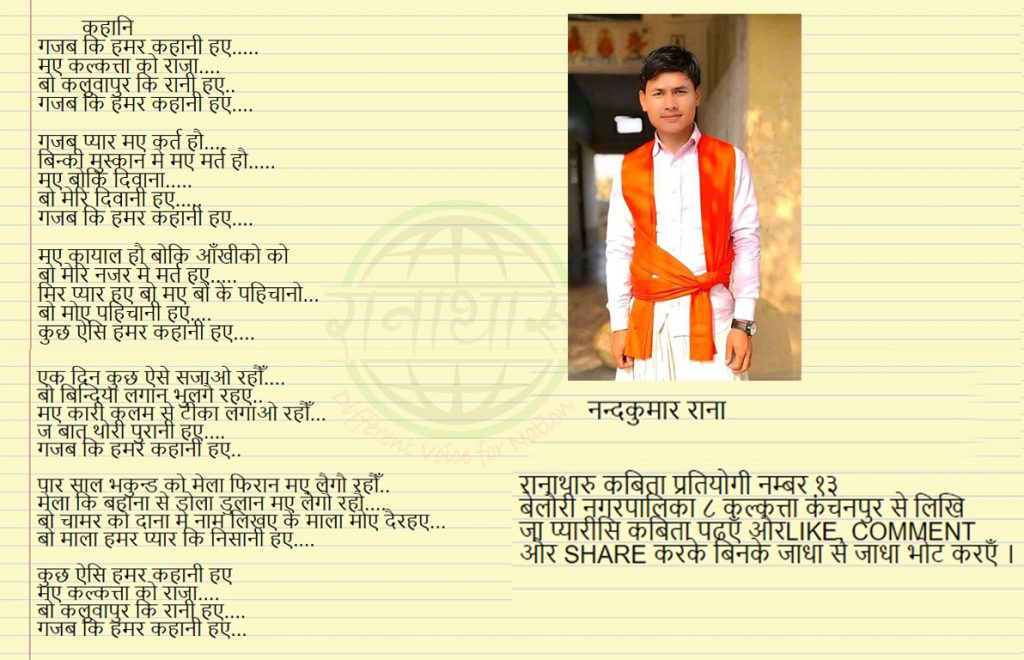 कहानि
गजब कि हमर कहानी हए.....
मए कल्कत्ता को राजा....
बो कलुवापुर कि रानी हए..
गजब कि हमर कहानी हए....
गजब प्यार मए कर्त हौ....
बिन्की मुस्कान मे मए मर्त हौ.....
मए बोकि दिवाना.....
बो मेरि दिवानी हए.....
गजब कि हमर कहानी हए....
मए कायाल हौ बोकि आँखीको को
बो मेरि नजर मे मर्त हए.....
मिर प्यार हए बो मए बो के पहिचानो...
बो मोए पहिचानी हए....
कुछ ऐसि हमर कहानी हए....
एक दिन कुछ ऐसे सजाओ रहौँ....
बो बिन्दिया लगान भुलगै रहए..
मए कारी कलम से टीका लगाओ रहौँ...
ज बात थोरी पुरानी हए....
गजब कि हमर कहानी हए..
पार साल भकुन्ड को मेला फिरान मए लैगौ रहौँ..
मेला कि बहाना से डोला डुलान मए लैगौ रहो....
बो चामर को दाना मे नाम लिखए के माला मोए दैरहए...
बो माला हमर प्यार कि निसानी हए....
कुछ ऐसि हमर कहानी हए
मए कल्कत्ता को राजा....
बो कलुवापुर कि रानी हए....
गजब कि हमर कहानी हए...
रानाथारू
Different Voice for Nation
नन्दकुमार राना
रानाथारु कबिता प्रतियोगी नम्बर १३
बेलौरी नगरपालिका ८ कल्कत्ता कंचनपुर से लिखि
जा प्यारीसि कबिता पढएँ औरLIKE, COMMENT
और SHARE करके बिनके जाधा से जाधा भोट करएँ ।